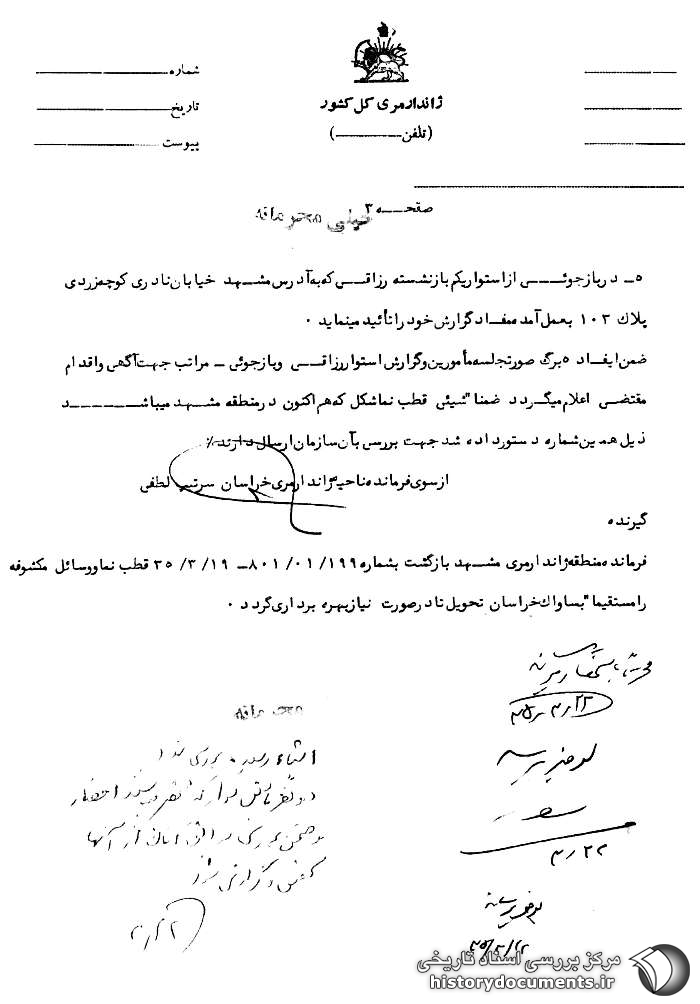 ژاندارمری کل کشور
(تلفن ـــــــ)
شماره
تاریخ
پیوست
صفحـــه ۳
خیلی محرمانه
۵ـ در بازجوئـــی از استوار یکم بازنشسته رزاقـــی که به آدرس مشهـد خیابان نادری کوچه زردی
پلاک ۱۰۳ بعمل آمده مفـاد گزارش خود را تأئید مینماید ۰
ضمن ایفـاد ۵ برگ صورتجلسه مأمورین و گزارش استوار رزاقـــی و بازجوئی ـ مراتب جهت آگهی و اقدام
مقتضـی اعلام میگردد ضمنا" شیئی قطب نما شکل که هم اکنون در منطقه مشهـد میباشـــــد
ذیل همین شماره دستور داده شد جهت بررسی بآن سازمان ارسال دارند ٪
از سوی فرمانده ناحیه ژاندارمری خراسان سرتیپ لطفی
گیرنده
فرمانده منطقه ژاندارمری مشهـد بازگشت بشماره ۱۹۹/ ۰۱/ ۸۰۱ـ ۱۹/ ۳/ ۳۵ قطب نما و وسائل مکشوفه
را مستقیما" بساواک خراسان تحویل تا در صورت نیاز بهره برداری گردد ۰
۳۵٫۳٫۲۲
محرمانه
اشیاء رسیده بررسی شد
احضار
از آنها
و گزارش شود
۳٫۲۲
۳٫۲۲
۳۵/۳/۲۲
مرکز بررسی اسناد تاریخی
historydocuments.ir